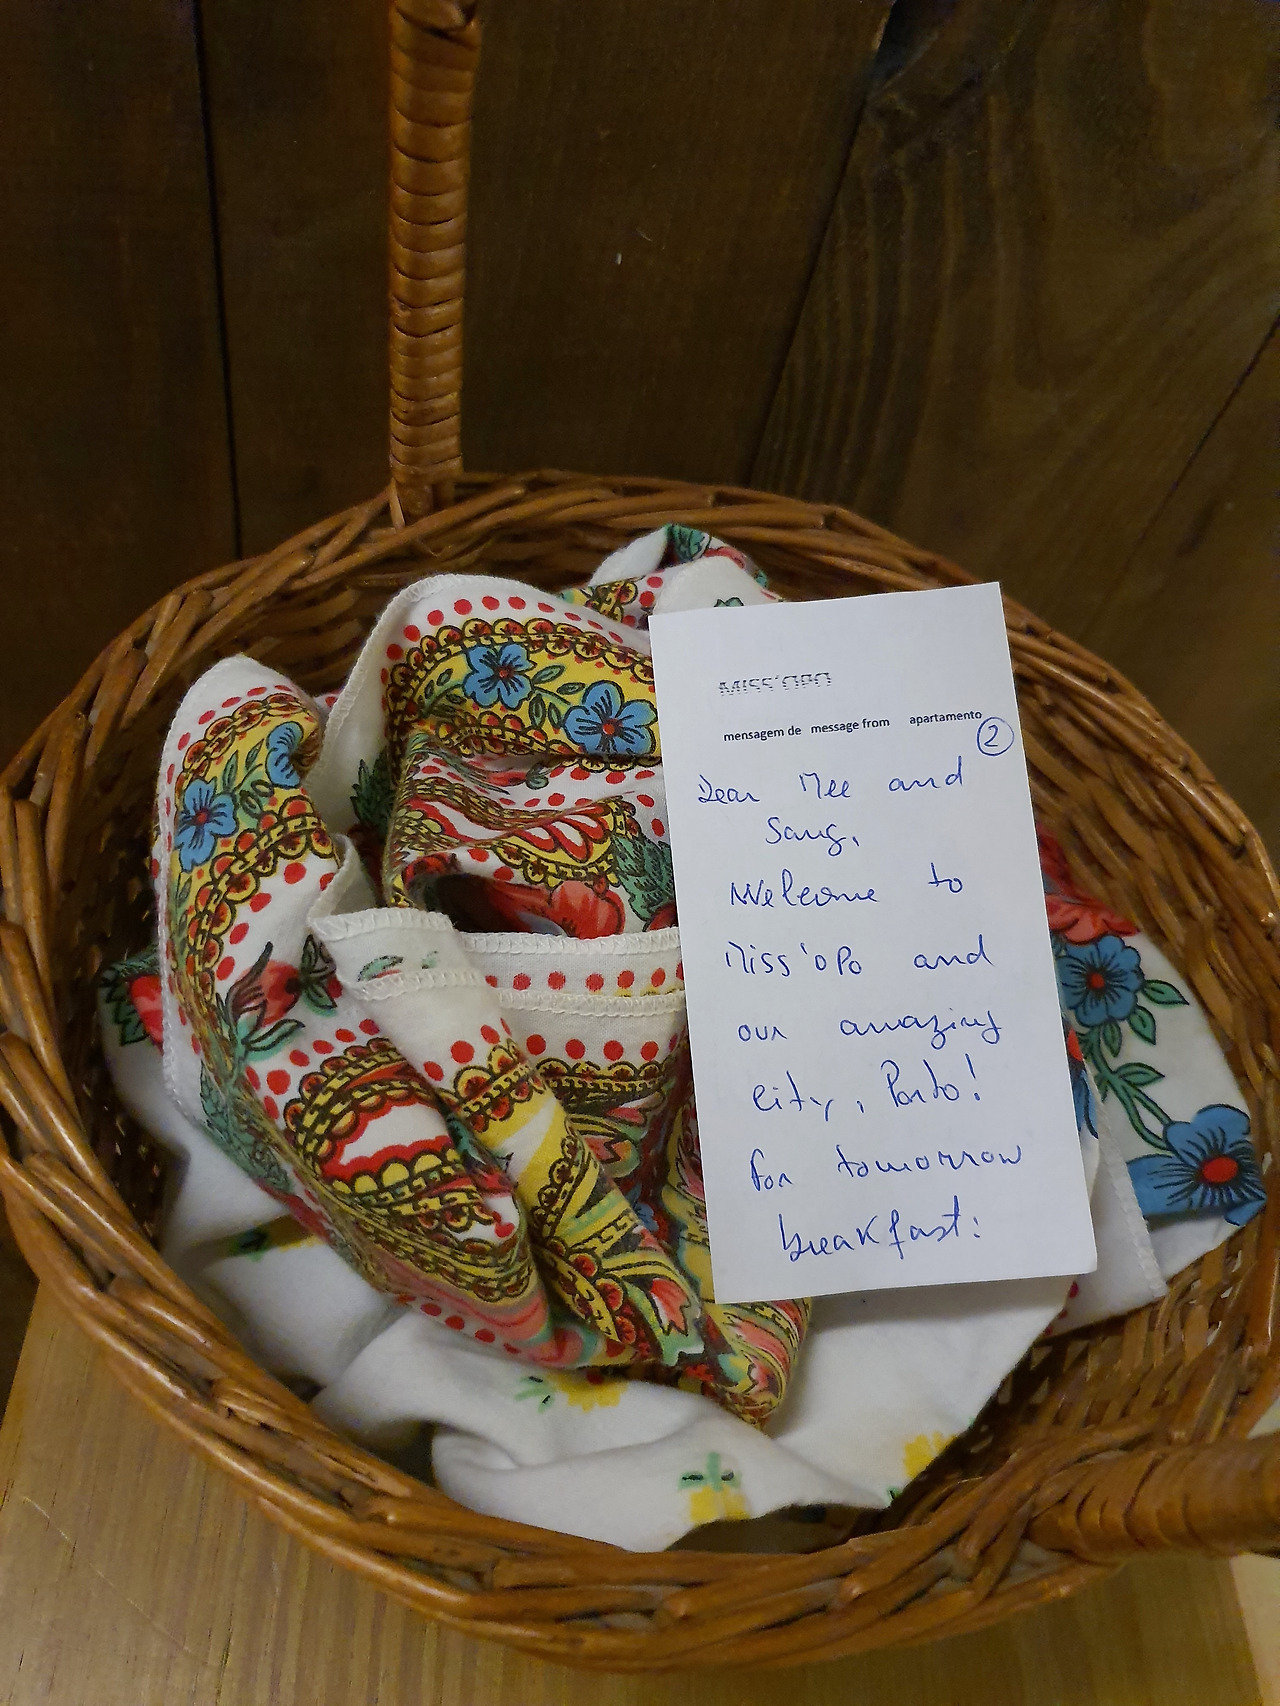 MISS'OPO
mensagem de message from apartamento
2
Dear Mee and
Sang,
Welcome to
Miss'oPo and
our amazing
city, Porto!
for tomorrow
breakfast: